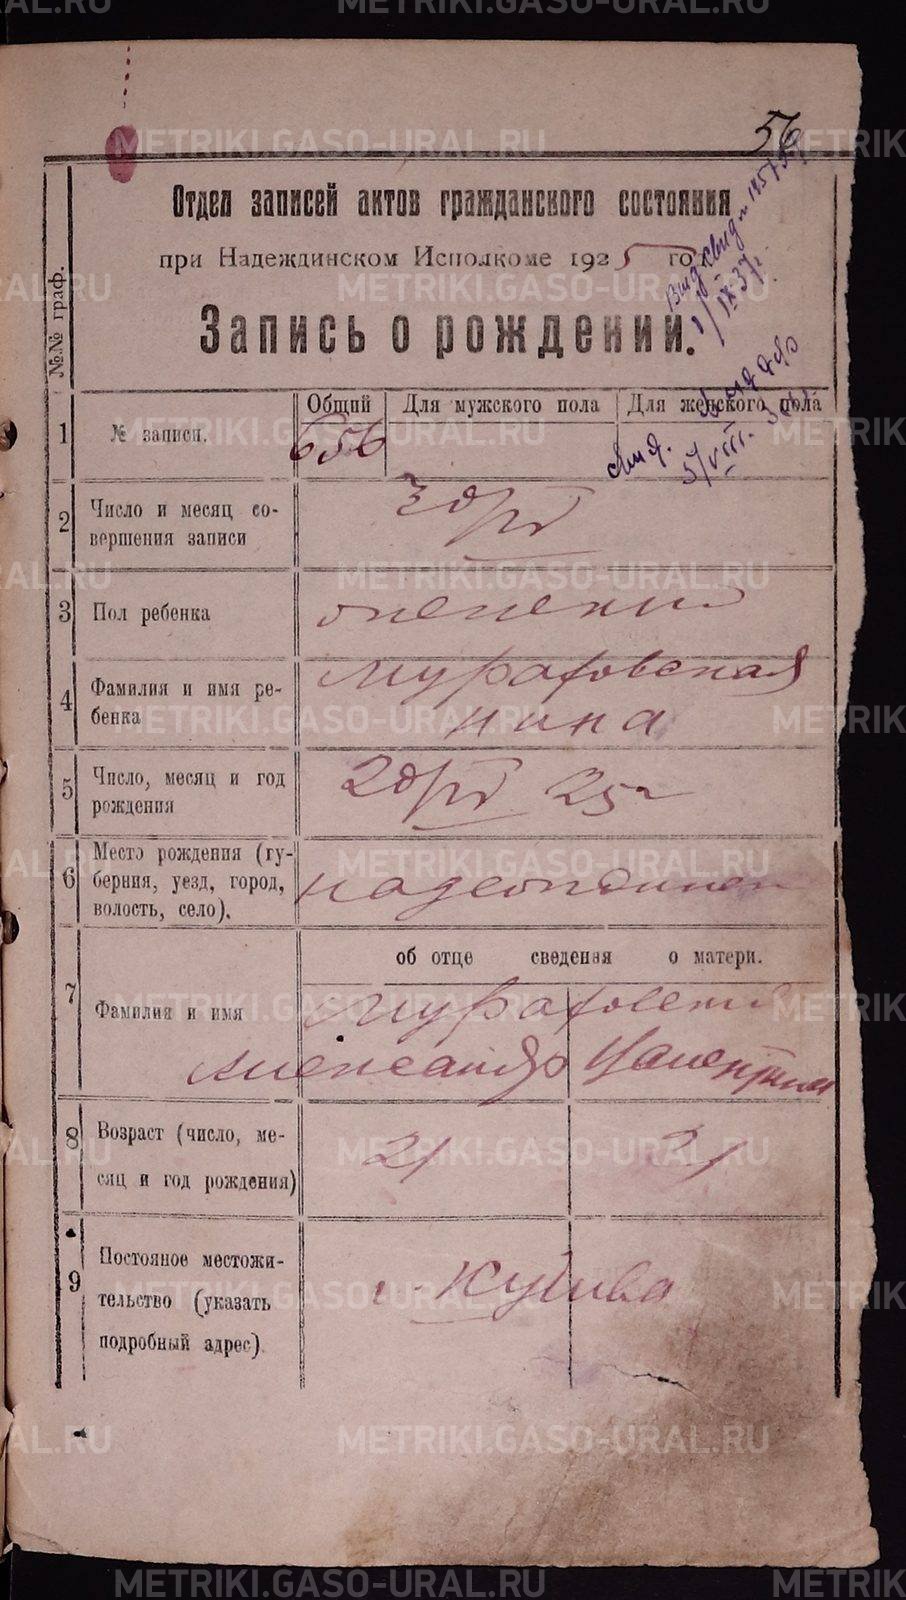 56
Отдел записей актов гражданского состояния
при Надеждинском Исполкоме 1925 год
Запись о рождении.
№№ граф.
1 № записи.
Общий Для мужского пола Для женского пола
656
2 Число и месяц со-
вершения записи
3 Пол ребенка
женский
4 Фамилия и имя ре-
бенка
Муратовская
Нина
5 Число, месяц и год
рождения
25 г
6 Место рождения (гу-
берния, уезд, город,
волость, село).
Надеждинск
об отце сведения о матери.
7 Фамилия и имя
Муратовский
Александр Валентина
8 Возраст (число, ме-
сяц и год рождения)
21 21
9 Постояное местожи-
тельство (указать
подробный адрес)
METRIKI.GASO-URAL.RU